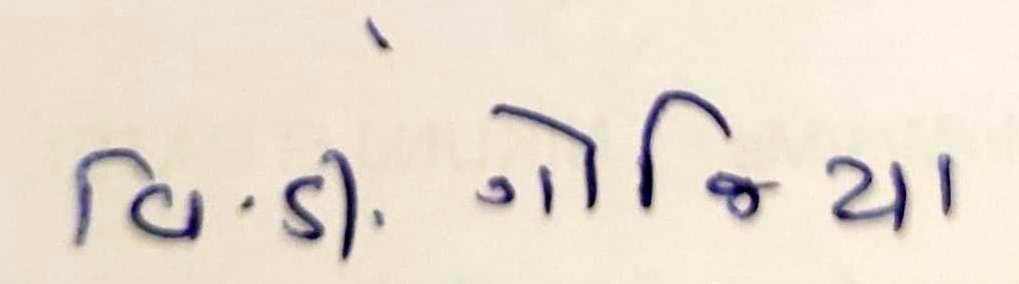 વિ.ડી. ગોજિયા